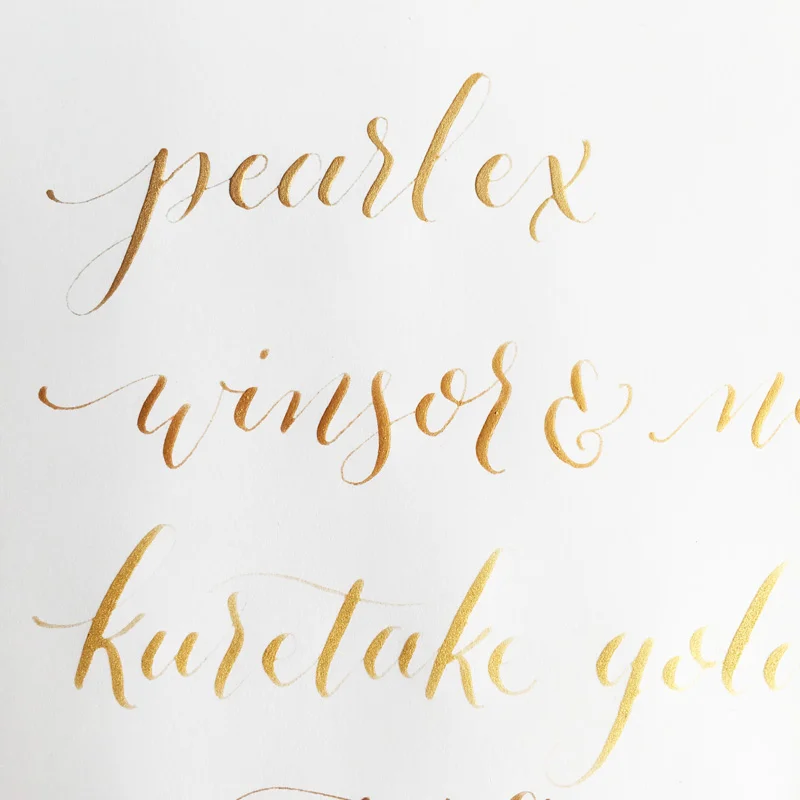 pearl ex
winsor & ne
kuretake gol